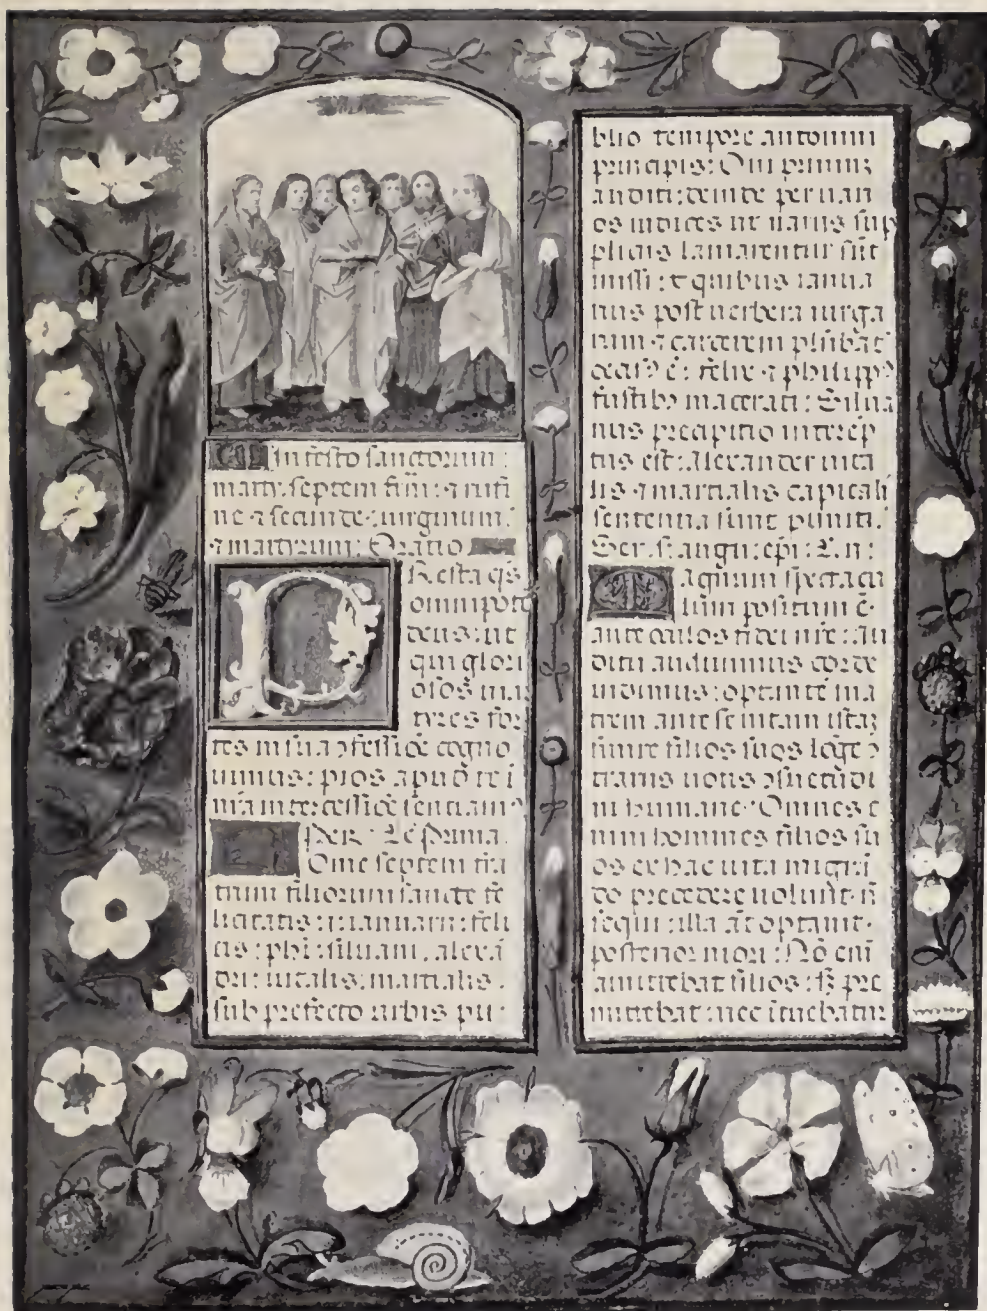 In festo sanctorum
marty. septem frm̄: ⁊ rufi
ne ⁊ secunde: virginum
⁊ martyrum: Oratio
Resta qs̄
omnipotē
deus: ut
qui glori
osos mar
tyres for
tes in sua ꝯfessiōe cogno
uimus: pios apud te ī
nr̄a intercessiōe sentiamꝰ
Per: Lc̄ prima.
Ome septem fra
trum filiorum sancte fe
licitatis: ianuarii: feli
cis: phi: siluani. alexā
dri: uitalis. martialis.
sub prefecto urbis pu
blio tempore antonini
principis: Qui primū
auditi: deinde per uari
os iudices ut uariis sup
pliciis laniarentur sūt
missi: e quibus ianua
rius post uerbera uirga
rum ⁊ carcerem plūbat̄
occisꝰ ē: felix ⁊ philippꝰ
fustibꝰ macerati: Silua
nus precipitio interēp
tus est: alexander uita
lis ⁊ martialis capitali
sententia sunt puniti.
Ser. sc̄. augu. epi:
agnum spectacu
lum positum ē
ante oculos fidei nr̄e: au
ditu audiuimus corde
uidimus: optantē ma
trem ante se uitam istaꝫ
finire filios suos lōge ꝯ
trariis uotis ꝯsuetudi
ni humane: Omnes e
nim homines filios su
os ex hac uita migrā
do precedere uolūt: n̄
sequi: illa at̄ optauit
posterior mori: Nō enī
amittebat filios: sꝫ pre
mittebat: nec ītuebatur